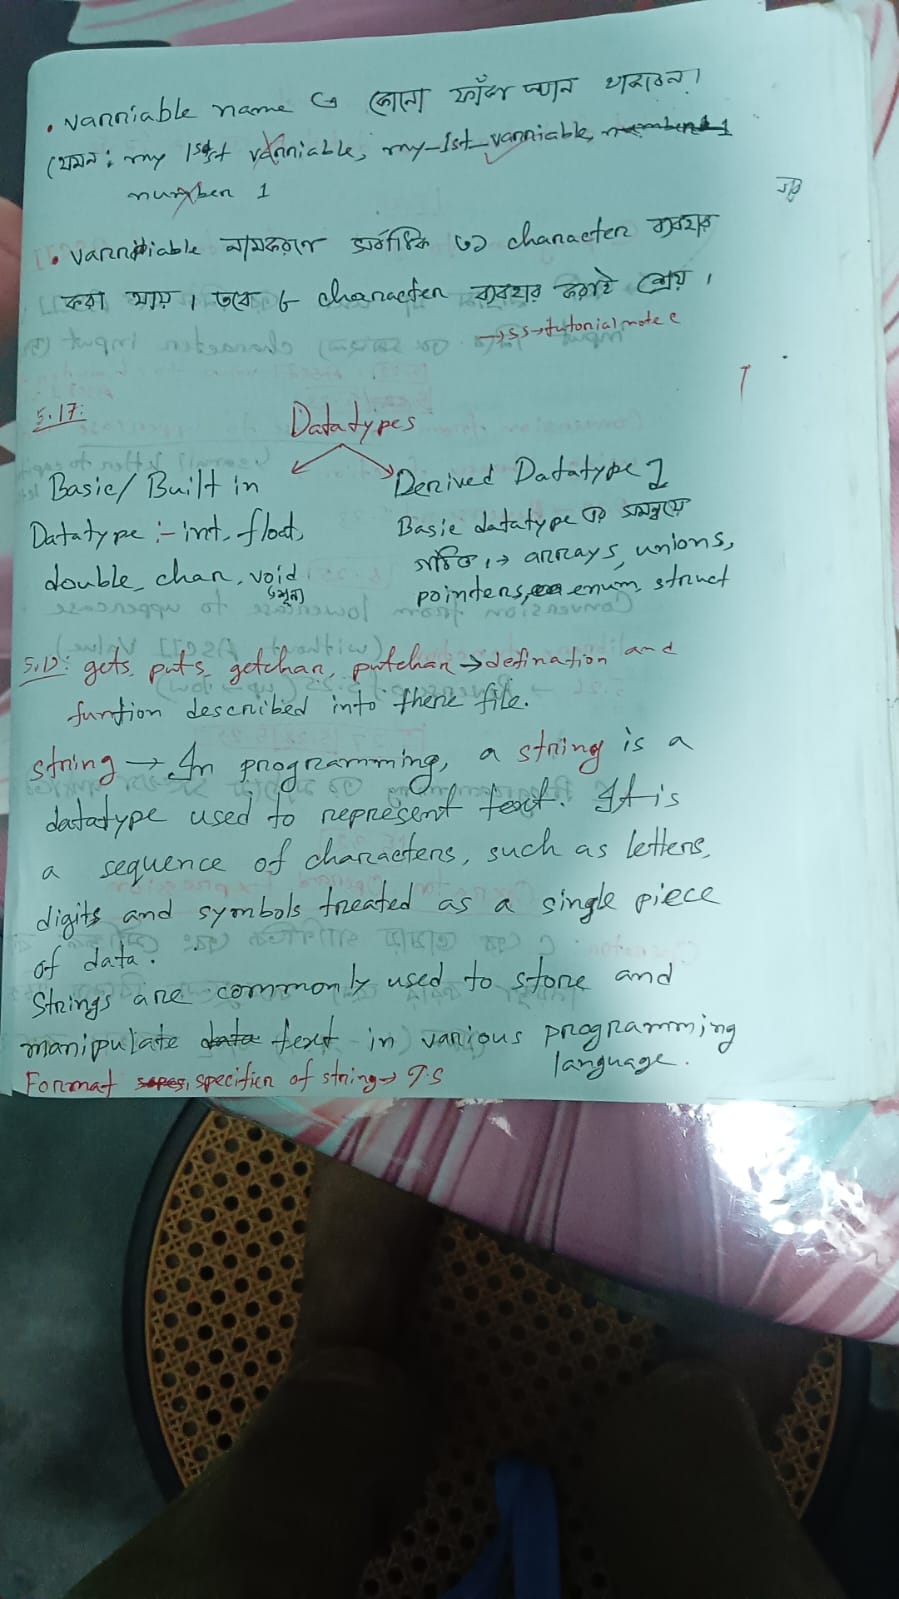 • varriable name এ কোনো ফাঁকা স্থান থাকবেনা।
যেমন: my 1st varriable, my_1st_varriable, number 1
number 1
• varriable নামকরণে সর্বাধিক ৩১ character ব্যবহার
করা যায়। তবে ৮ character ব্যবহার করাই শ্রেয়।
→ss→tutorial note e
5.17:
Datatypes
Basic/ Built in
Datatype :- int, float,
double, char, void
(শূন্য)
Derived Datatype
Basic datatype এর সমন্বয়ে
গঠিত, → arrays, unions,
pointers, enum, struct
gets, puts, getchar, putchar → defination and
funtion described into there file.
string → In programming, a string is a
datatype used to represent text. It is
a sequence of characters, such as letters,
digits and symbols treated as a single piece
of data.
Strings are commonly used to store and
manipulate data text in various programming
language.
Format specifier of string → %s